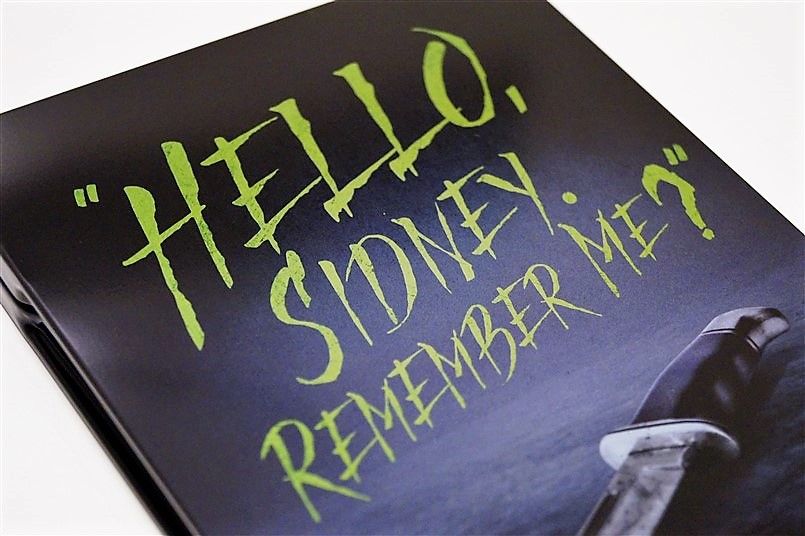 "HELLO,
SIDNEY.
REMEMBER ME?"